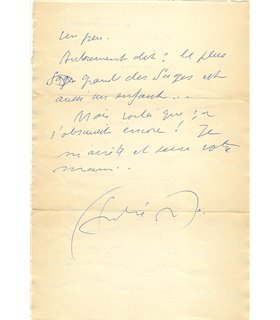 Un peu.
Autrement dit : le plus
grand des Sages est
aussi un enfant...
Mais voilà que ça
s'obscurcit encore ! Je
m'arrête et serre votre
main..
André